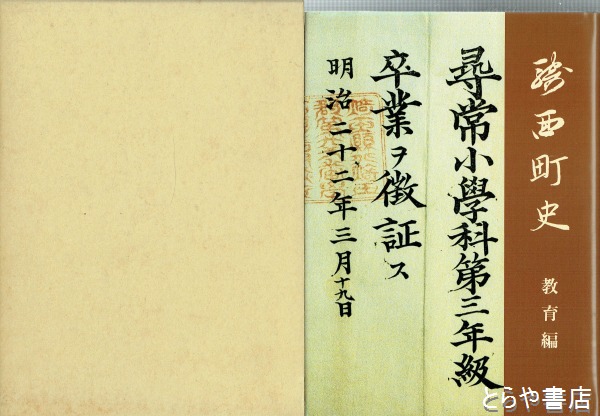 騎西町史
教育編
尋常小學科第三年級
卒業ヲ徴証ス
明治二十二年三月十九日
とらや書店